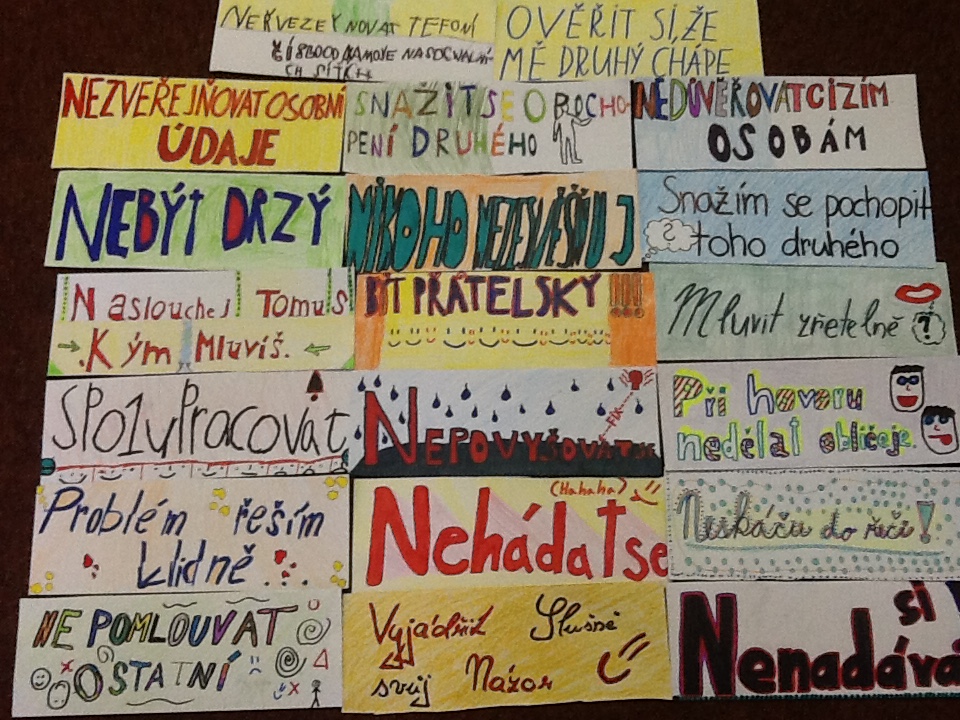 NOVAT
OVĚŘIT SI, ŽE
MĚ DRUHÝ CHÁPE
NEZVEŘEJŇOVAT OSOBNÍ
ÚDAJE
SNAŽIT SE O POCHO-
PENÍ DRUHÉHO
NEDŮVĚŘOVAT CIZÍM
OSOBÁM
NEBÝT DRZÝ
NIKOHO
Snažím se pochopit
?
toho druhého
Naslouchej Tomu S
Kým Mluvíš.
BÝT PŘÁTELSKÝ !!!!
Mluvit zřetelně
?
SPo1uPracovat
NEPOVYŠOVAT SE
Při hovoru
nedělat obličeje.
Problém řeším
klidně ...
(Hahaha)
Nehádat se
Neskáču do řeči!
NEPOMLOUVAT
OSTATNÍ
Vyjádřit Slušně
svůj Názor
si
Nenadáva